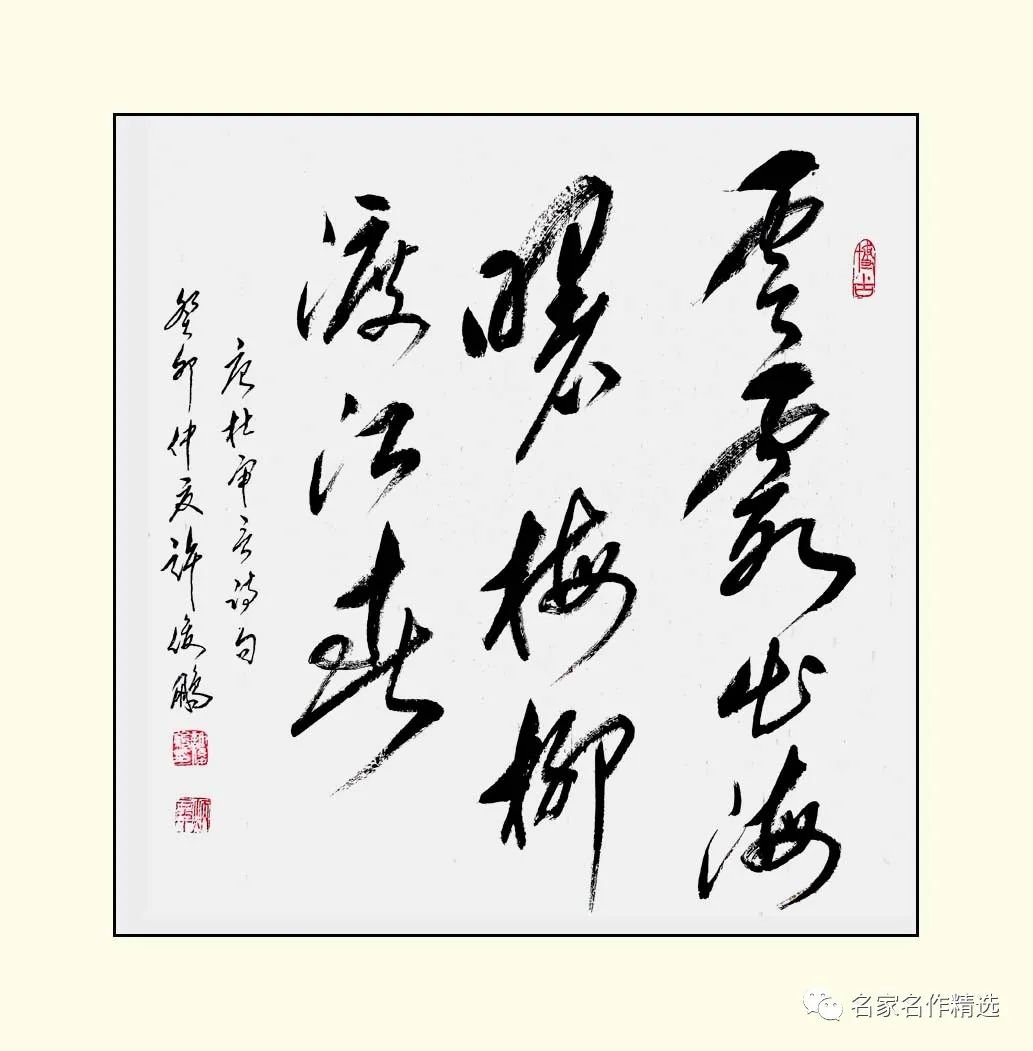 博古
雲霞出海
曙梅柳
渡江春
唐杜审言诗句
癸卯仲夏许俊鹏
名家名作精选